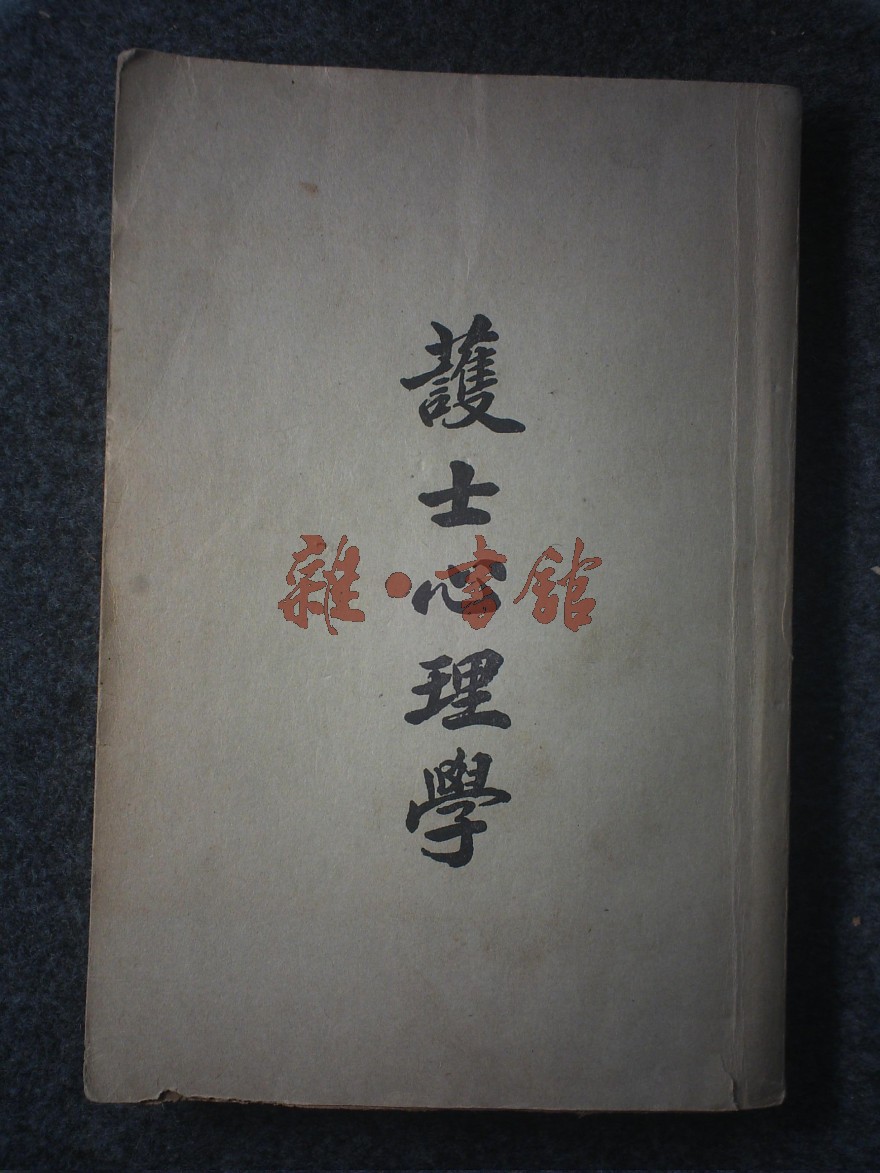 護士心理學
雜·書館